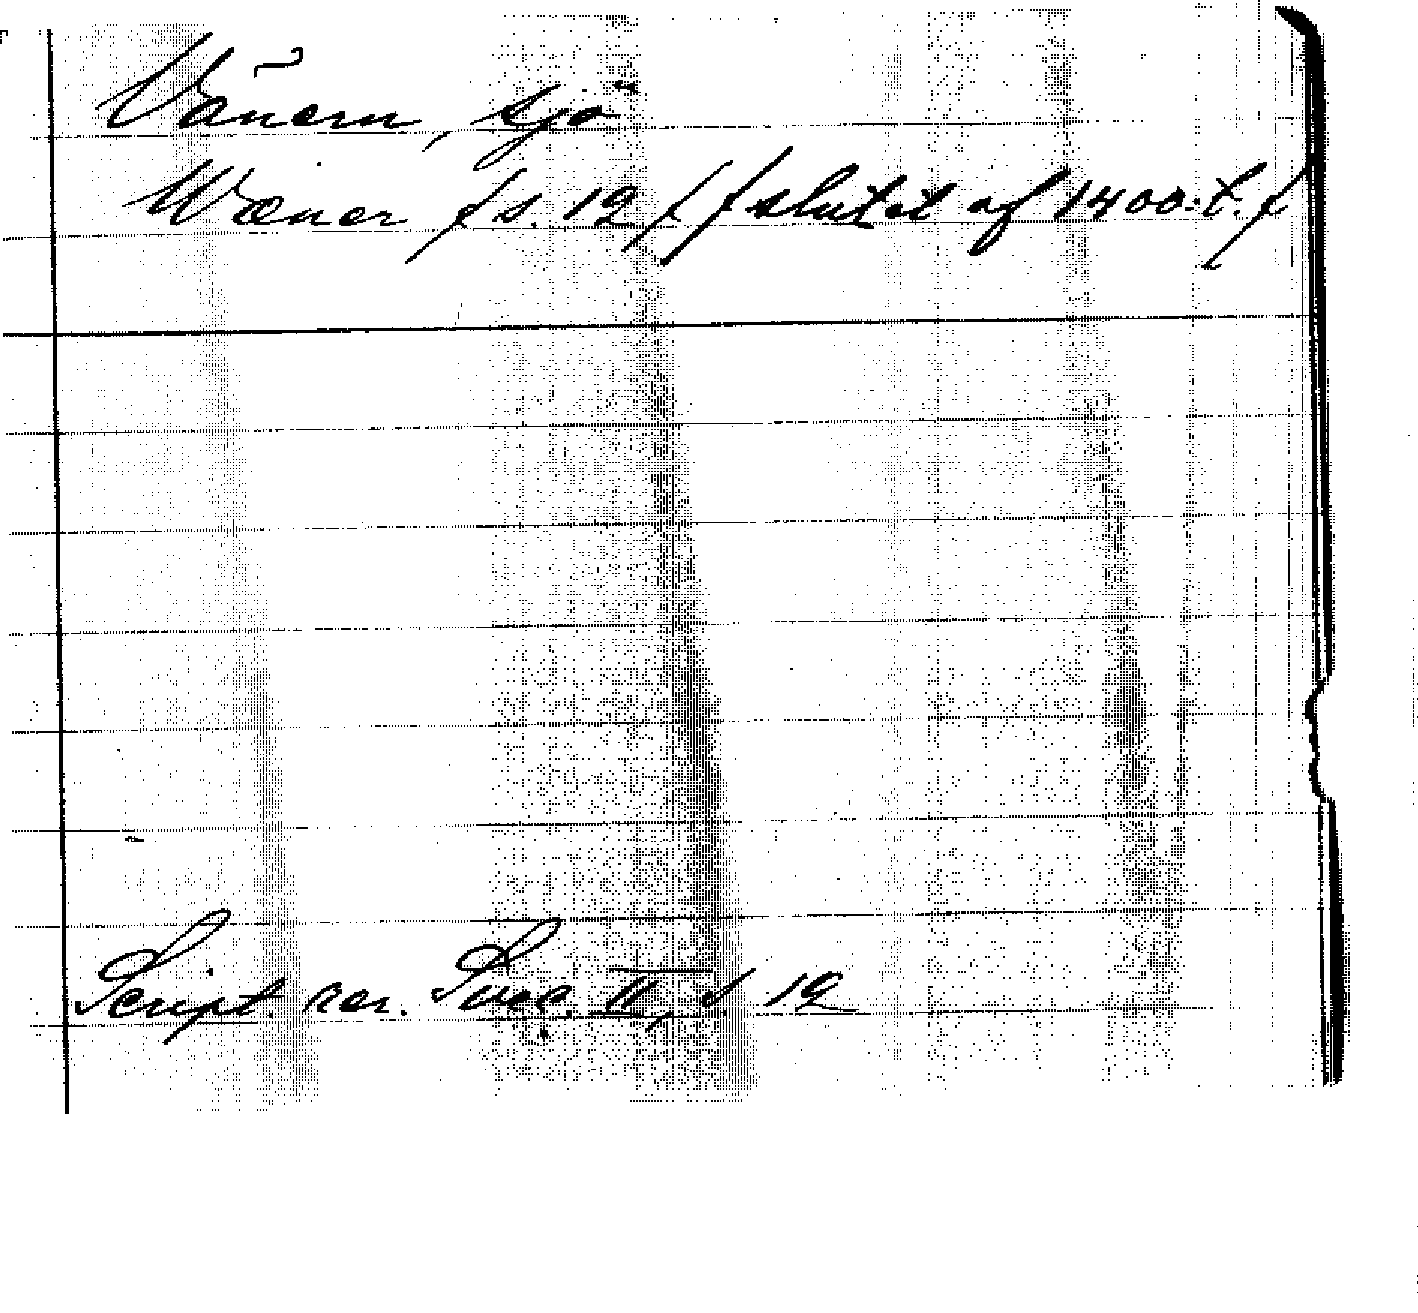 Vänern, sjö
Wæner (s. 12) (slutet af 1400-t.)
Script. rer. Svec. II, s 12